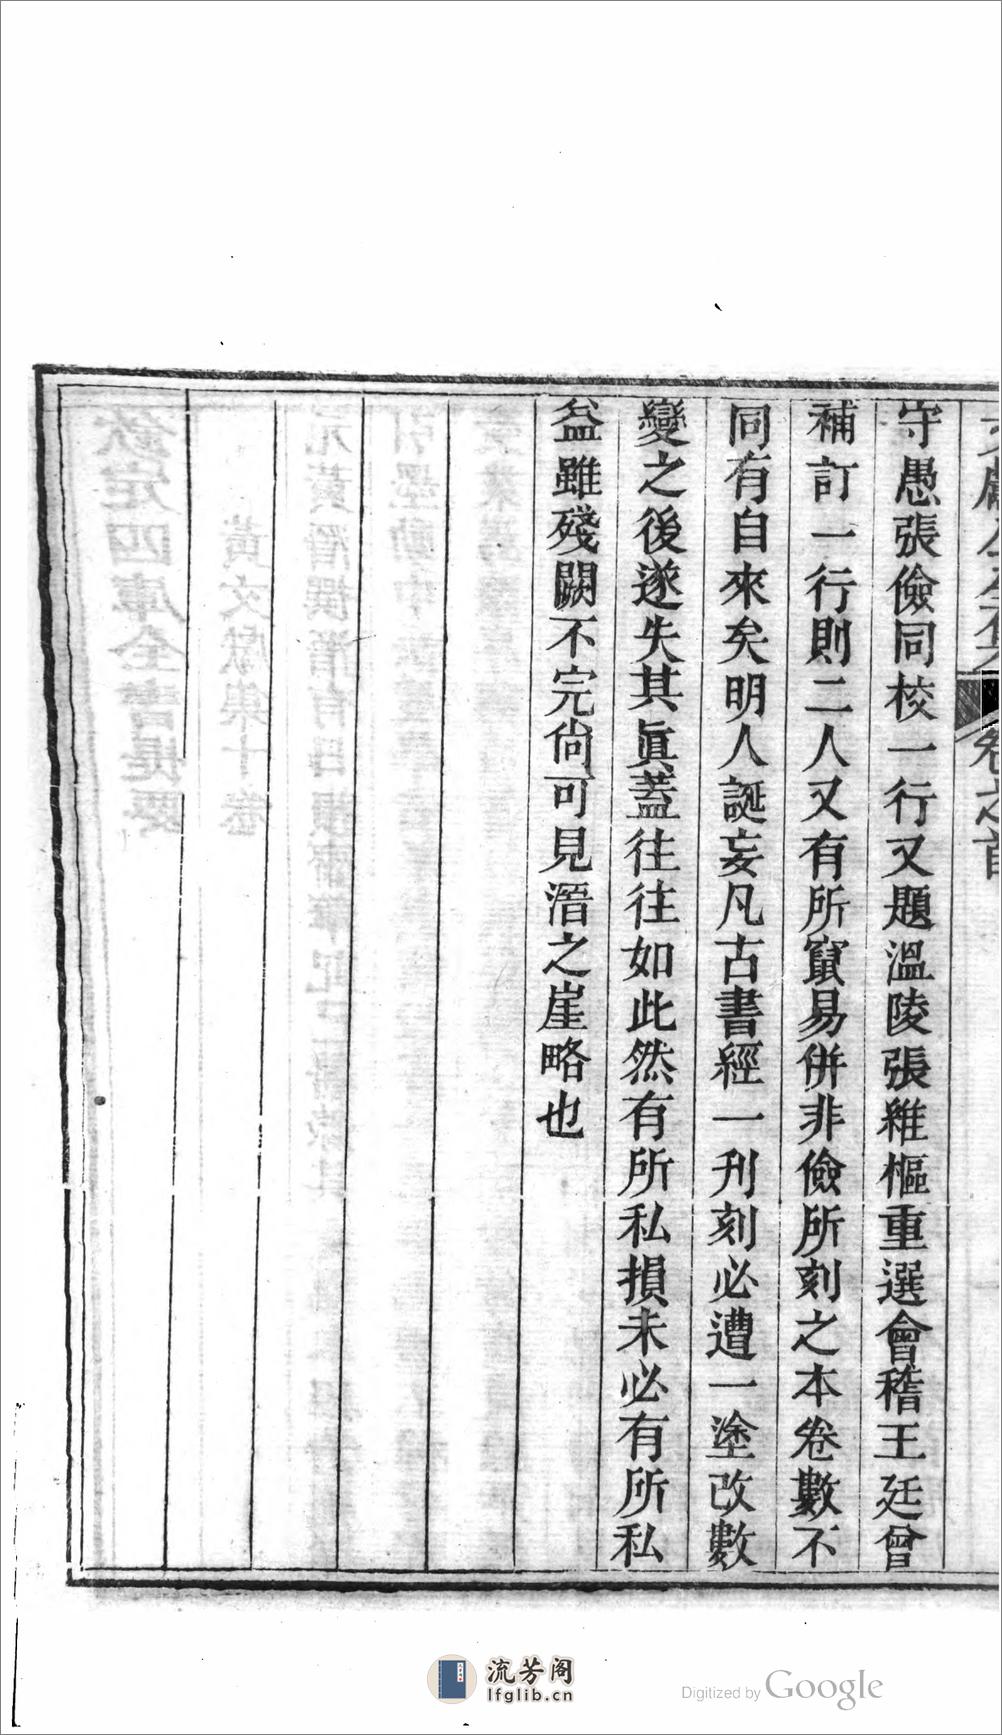 守愚張儉同校一行又題溫陵張維樞重選會稽王廷曾
補訂一行則二人又有所竄易併非儉所刻之本卷數不
同有自來矣明人誕妄凡古書經一刊刻必遭一塗改數
變之後遂失其眞蓋往往如此然有所私損未必有所私
益雖殘闕不完尙可見溍之崖略也
卷之首
流芳阁
lfglib.cn
Digitized by Google